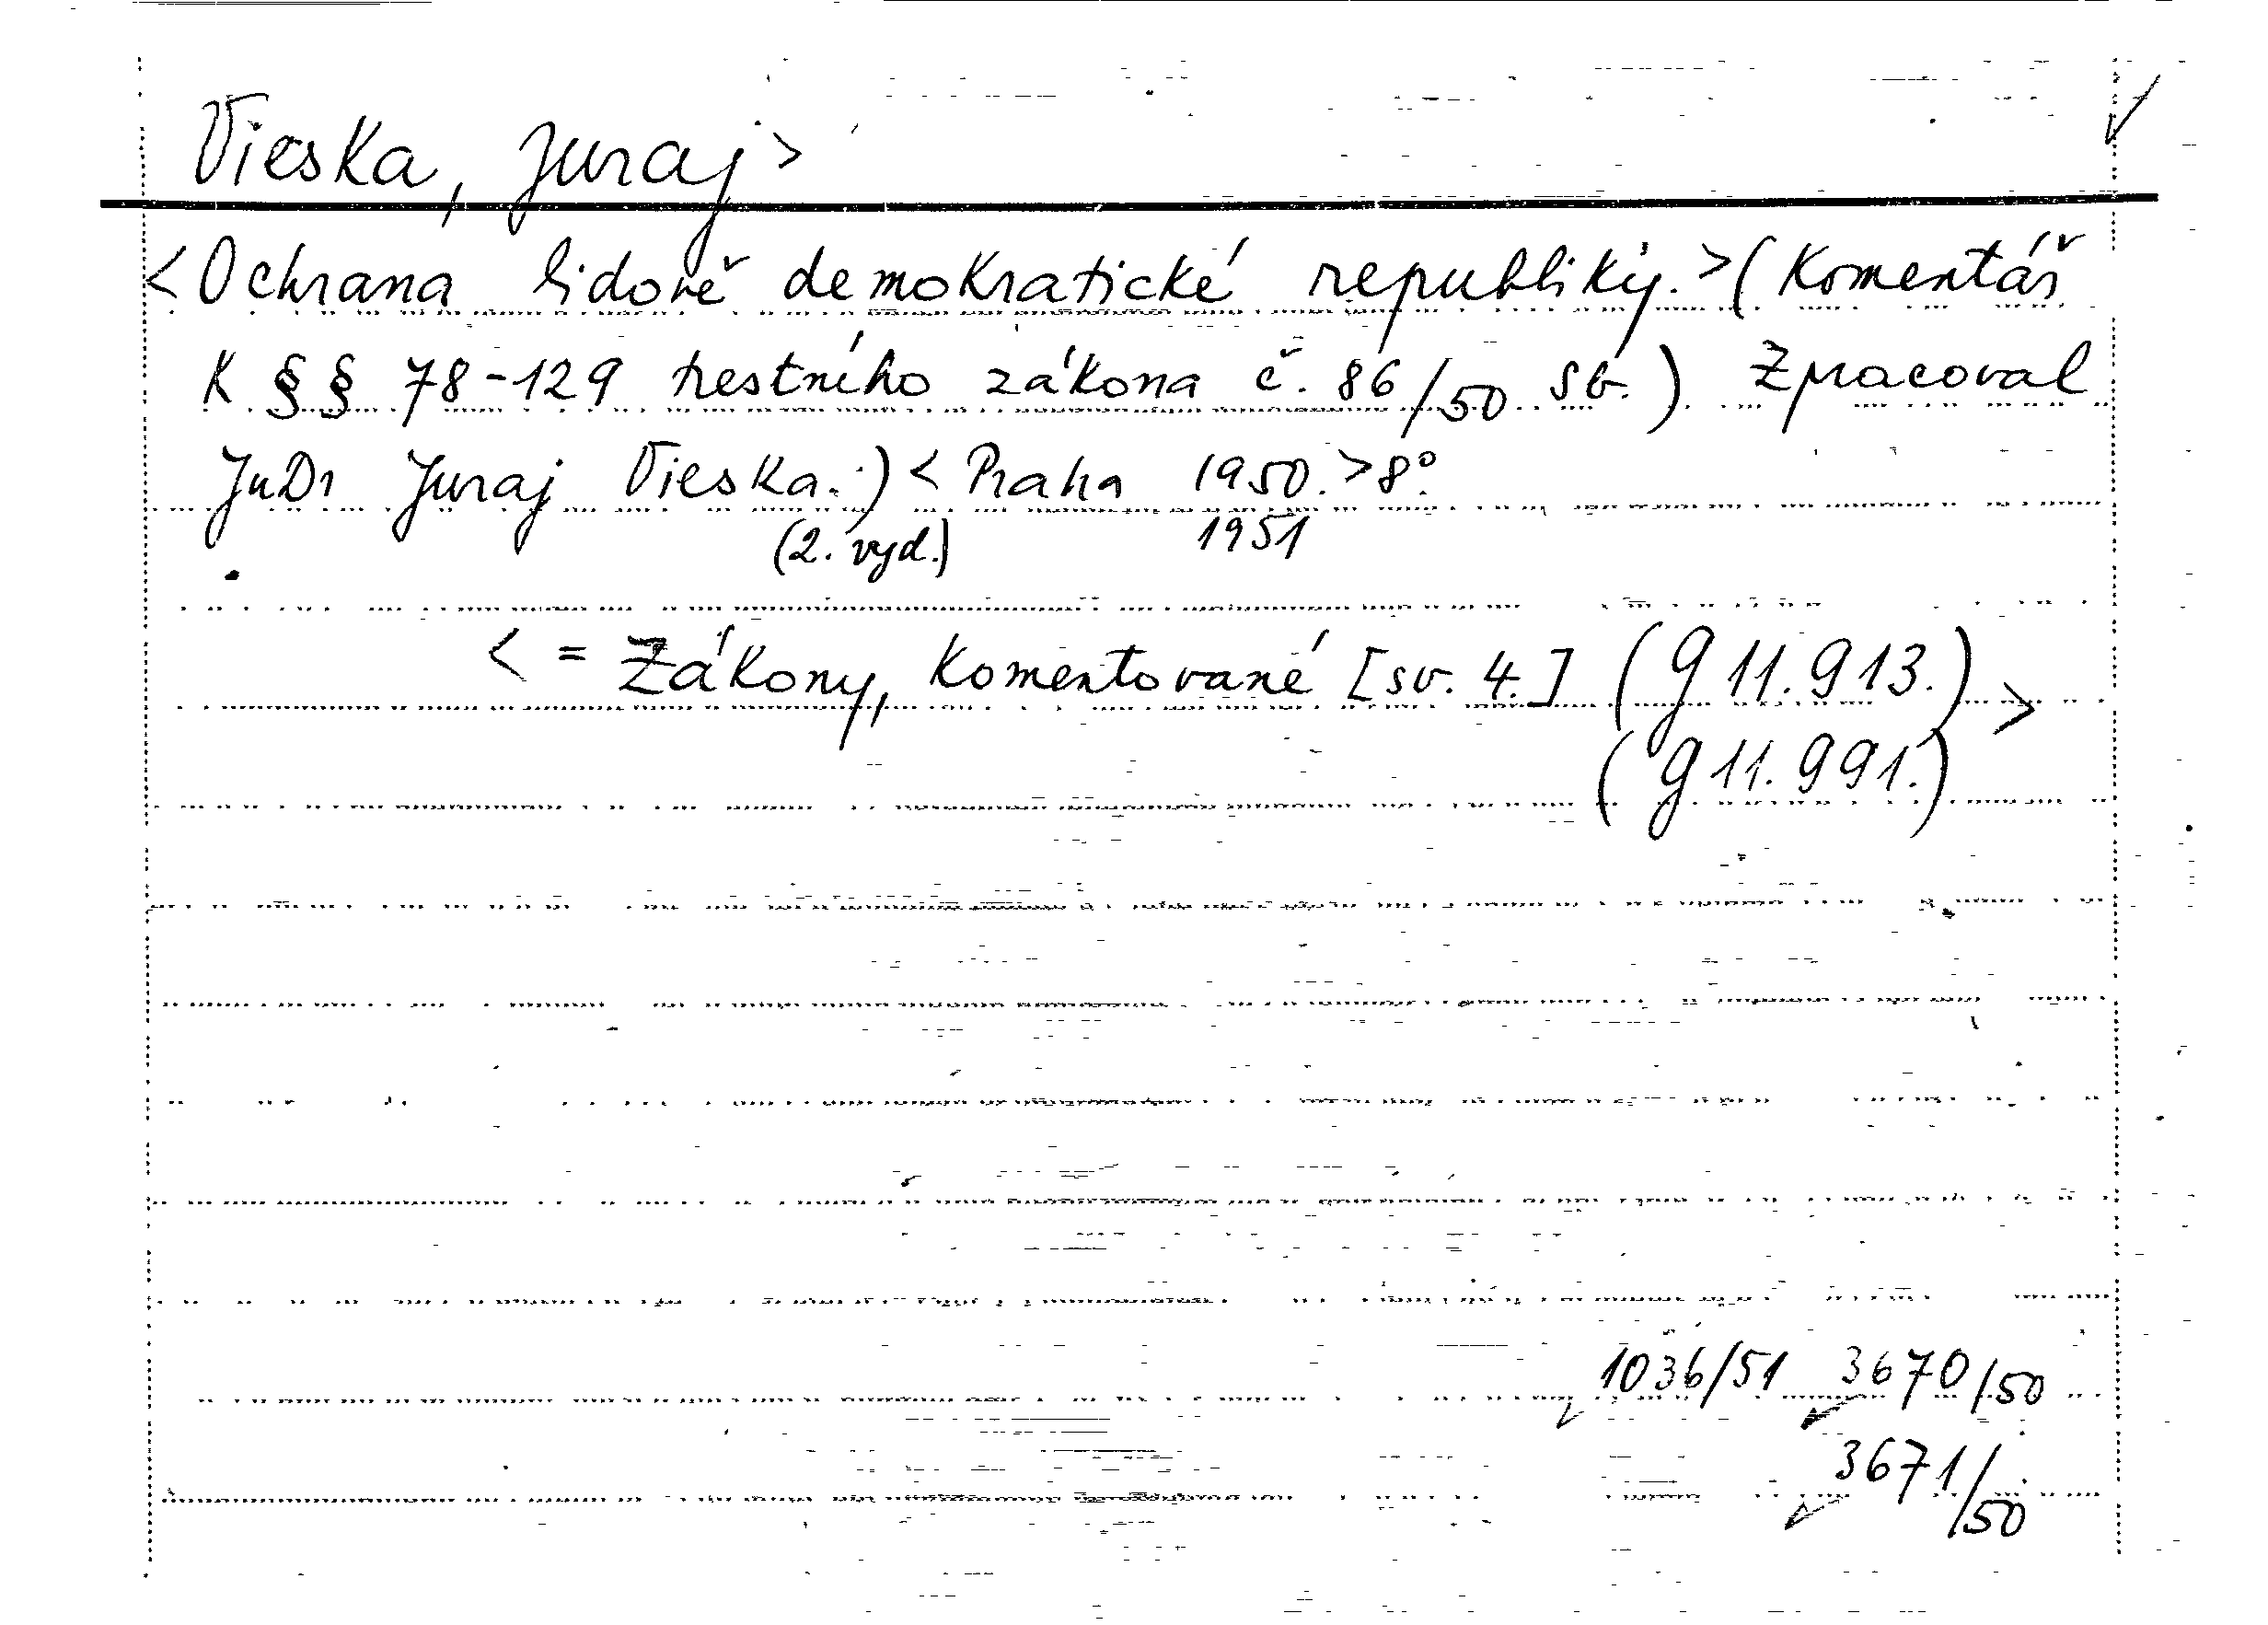 Vieska, Juraj>
<Ochrana lidově demokratické republiky.> (Komentář
k §§ 78-129 trestního zákona č. 86/50 Sb.) Zpracoval
JuDr Juraj Vieska.) < Praha 1950. > 8°.
(2. vyd.) 1951
< = Zákony, komentované [sv. 4.] (g 11.913.) >
(g 11.991.)
1036/51 3670/50
3671/50